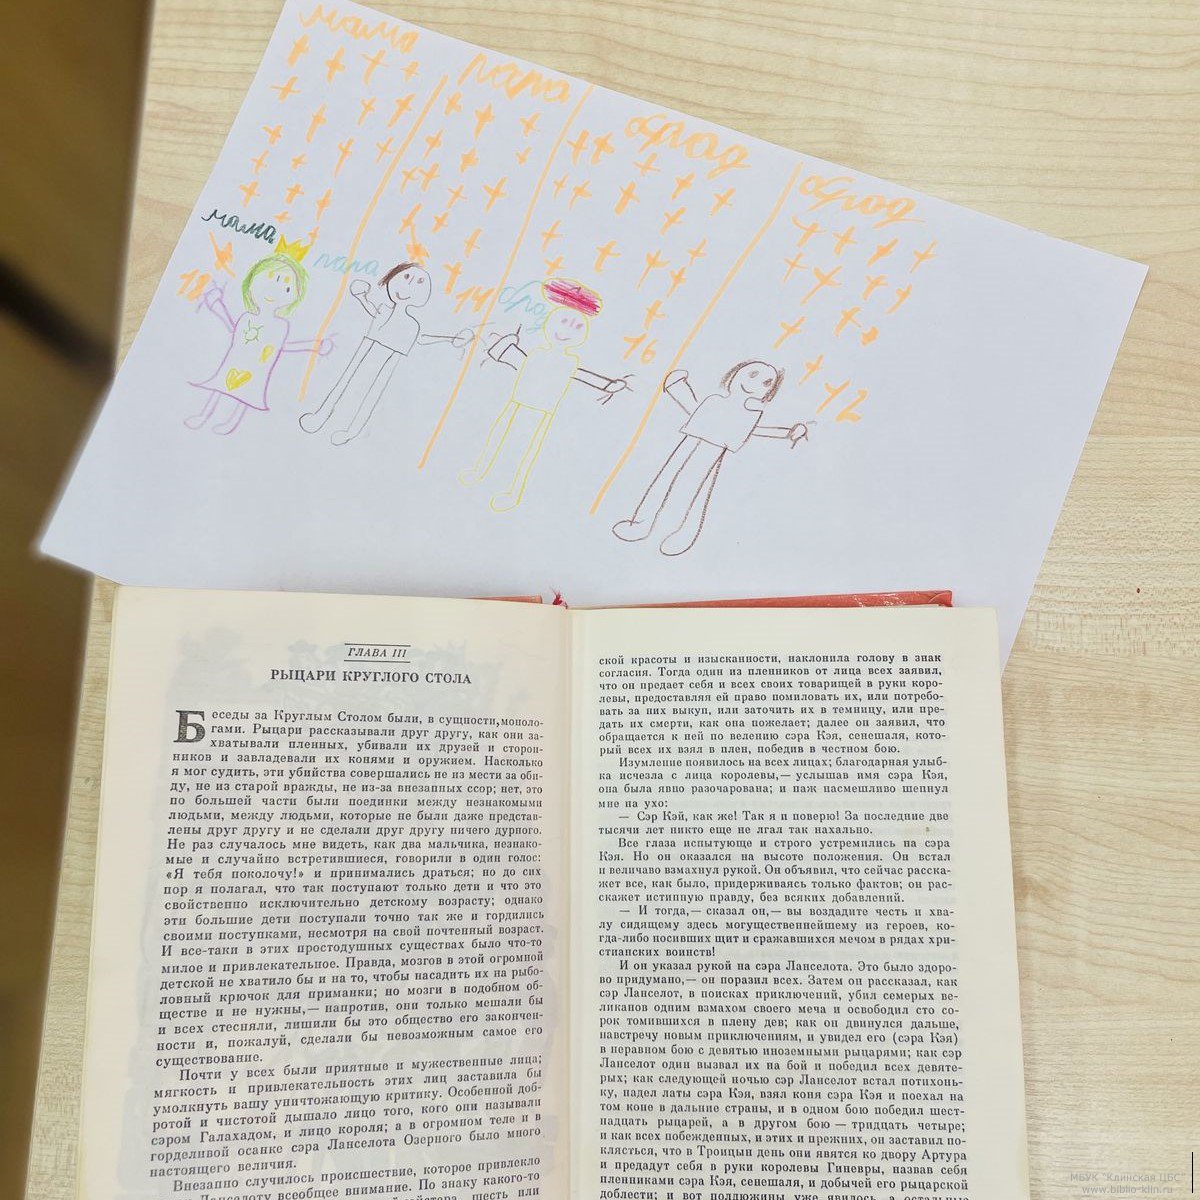 мама
папа
брад
брад
мама
папа
брад
18
14
16
12
ГЛАВА III
РЫЦАРИ КРУГЛОГО СТОЛА
Беседы за Круглым Столом были, в сущности, моноло-
гами. Рыцари рассказывали друг другу, как они за-
хватывали пленных, убивали их друзей и сторон-
ников и завладевали их конями и оружием. Насколько
я мог судить, эти убийства совершались не из мести за оби-
ду, не из старой вражды, не из-за внезапных ссор; нет, это
по большей части были поединки между незнакомыми
людьми, между людьми, которые не были даже представ-
лены друг другу и не сделали друг другу ничего дурного.
Не раз случалось мне видеть, как два мальчика, незнако-
мые и случайно встретившиеся, говорили в один голос:
«Я тебя поколочу!» и принимались драться; но до сих
пор я полагал, что так поступают только дети и что это
свойственно исключительно детскому возрасту; однако
эти большие дети поступали точно так же и гордились
своими поступками, несмотря на свой почтенный возраст.
И все-таки в этих простодушных существах было что-то
милое и привлекательное. Правда, мозгов в этой огромной
детской не хватило бы и на то, чтобы насадить их на рыбо-
ловный крючок для приманки; но мозги в подобном об-
ществе и не нужны,— напротив, они только мешали бы
и всех стесняли, лишили бы это общество его закончен-
ности и, пожалуй, сделали бы невозможным самое его
существование.
Почти у всех были приятные и мужественные лица;
мягкость и привлекательность этих лиц заставила бы
умолкнуть вашу уничтожающую критику. Особенной доб-
ротой и чистотой дышало лицо того, кого они называли
сэром Галахадом, и лицо короля; а в огромном теле и в
горделивой осанке сэра Ланселота Озерного было много
настоящего величия.
Внезапно случилось происшествие, которое привлекло
Ланселоту всеобщее внимание. По знаку какого-то
шесть или
ской красоты и изысканности, наклонила голову в знак
согласия. Тогда один из пленников от лица всех заявил,
что он предает себя и всех своих товарищей в руки коро-
левы, предоставляя ей право помиловать их, или потребо-
вать за них выкуп, или заточить их в темницу, или пре-
дать их смерти, как она пожелает; далее он заявил, что
обращается к ней по велению сэра Кэя, сенешаля, кото-
рый всех их взял в плен, победив в честном бою.
Изумление появилось на всех лицах; благодарная улыб-
ка исчезла с лица королевы,— услышав имя сэра Кэя,
она была явно разочарована; и паж насмешливо шепнул
мне на ухо:
— Сэр Кэй, как же! Так я и поверю! За последние две
тысячи лет никто еще не лгал так нахально.
Все глаза испытующе и строго устремились на сэра
Кэя. Но он оказался на высоте положения. Он встал
и величаво взмахнул рукой. Он объявил, что сейчас расска-
жет все, как было, придерживаясь только фактов; он рас-
скажет истинную правду, без всяких добавлений.
— И тогда,— сказал он,— вы воздадите честь и хва-
лу сидящему здесь могущественнейшему из героев, ко-
гда-либо носивших щит и сражавшихся мечом в рядах хри-
стианских воинств!
И он указал рукой на сэра Ланселота. Это было здоро-
во придумано,— он поразил всех. Затем он рассказал, как
сэр Ланселот, в поисках приключений, убил семерых ве-
ликанов одним взмахом своего меча и освободил сто со-
рок томившихся в плену дев; как он двинулся дальше,
навстречу новым приключениям, и увидел его (сэра Кэя)
в неравном бою с девятью иноземными рыцарями; как сэр
Ланселот один вызвал их на бой и победил всех девяте-
рых; как следующей ночью сэр Ланселот встал потихонь-
ку, надел латы сэра Кэя, взял коня сэра Кэя и поехал на
том коне в дальние страны, и в одном бою победил шест-
надцать рыцарей, а в другом бою — тридцать четыре;
и как всех побежденных, и этих и прежних, он заставил по-
клясться, что в Троицын день они явятся ко двору Артура
и предадут себя в руки королевы Гиневры, назвав себя
пленниками сэра Кэя, сенешаля, и добычей его рыцарской
доблести; и вот полдюжины уже явилось, а остальные
МБУК "Клинская ЦБС"
www.biblio-klin.ru